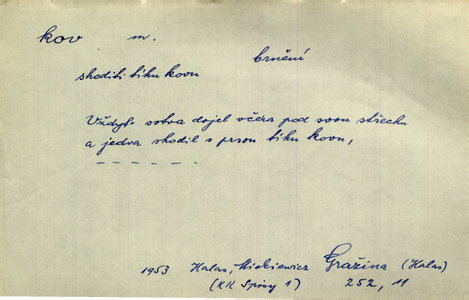 kov m.
brnění
shoditi tíhu kovu
Vždyť sotva dojel včera pod svou střechu
a jedva shodil s prsou tíhu kovu,
– – – – – .
1953 Halas, Mickiewicz Gražina (Halas)
(KK Spisy 1) 252, 11